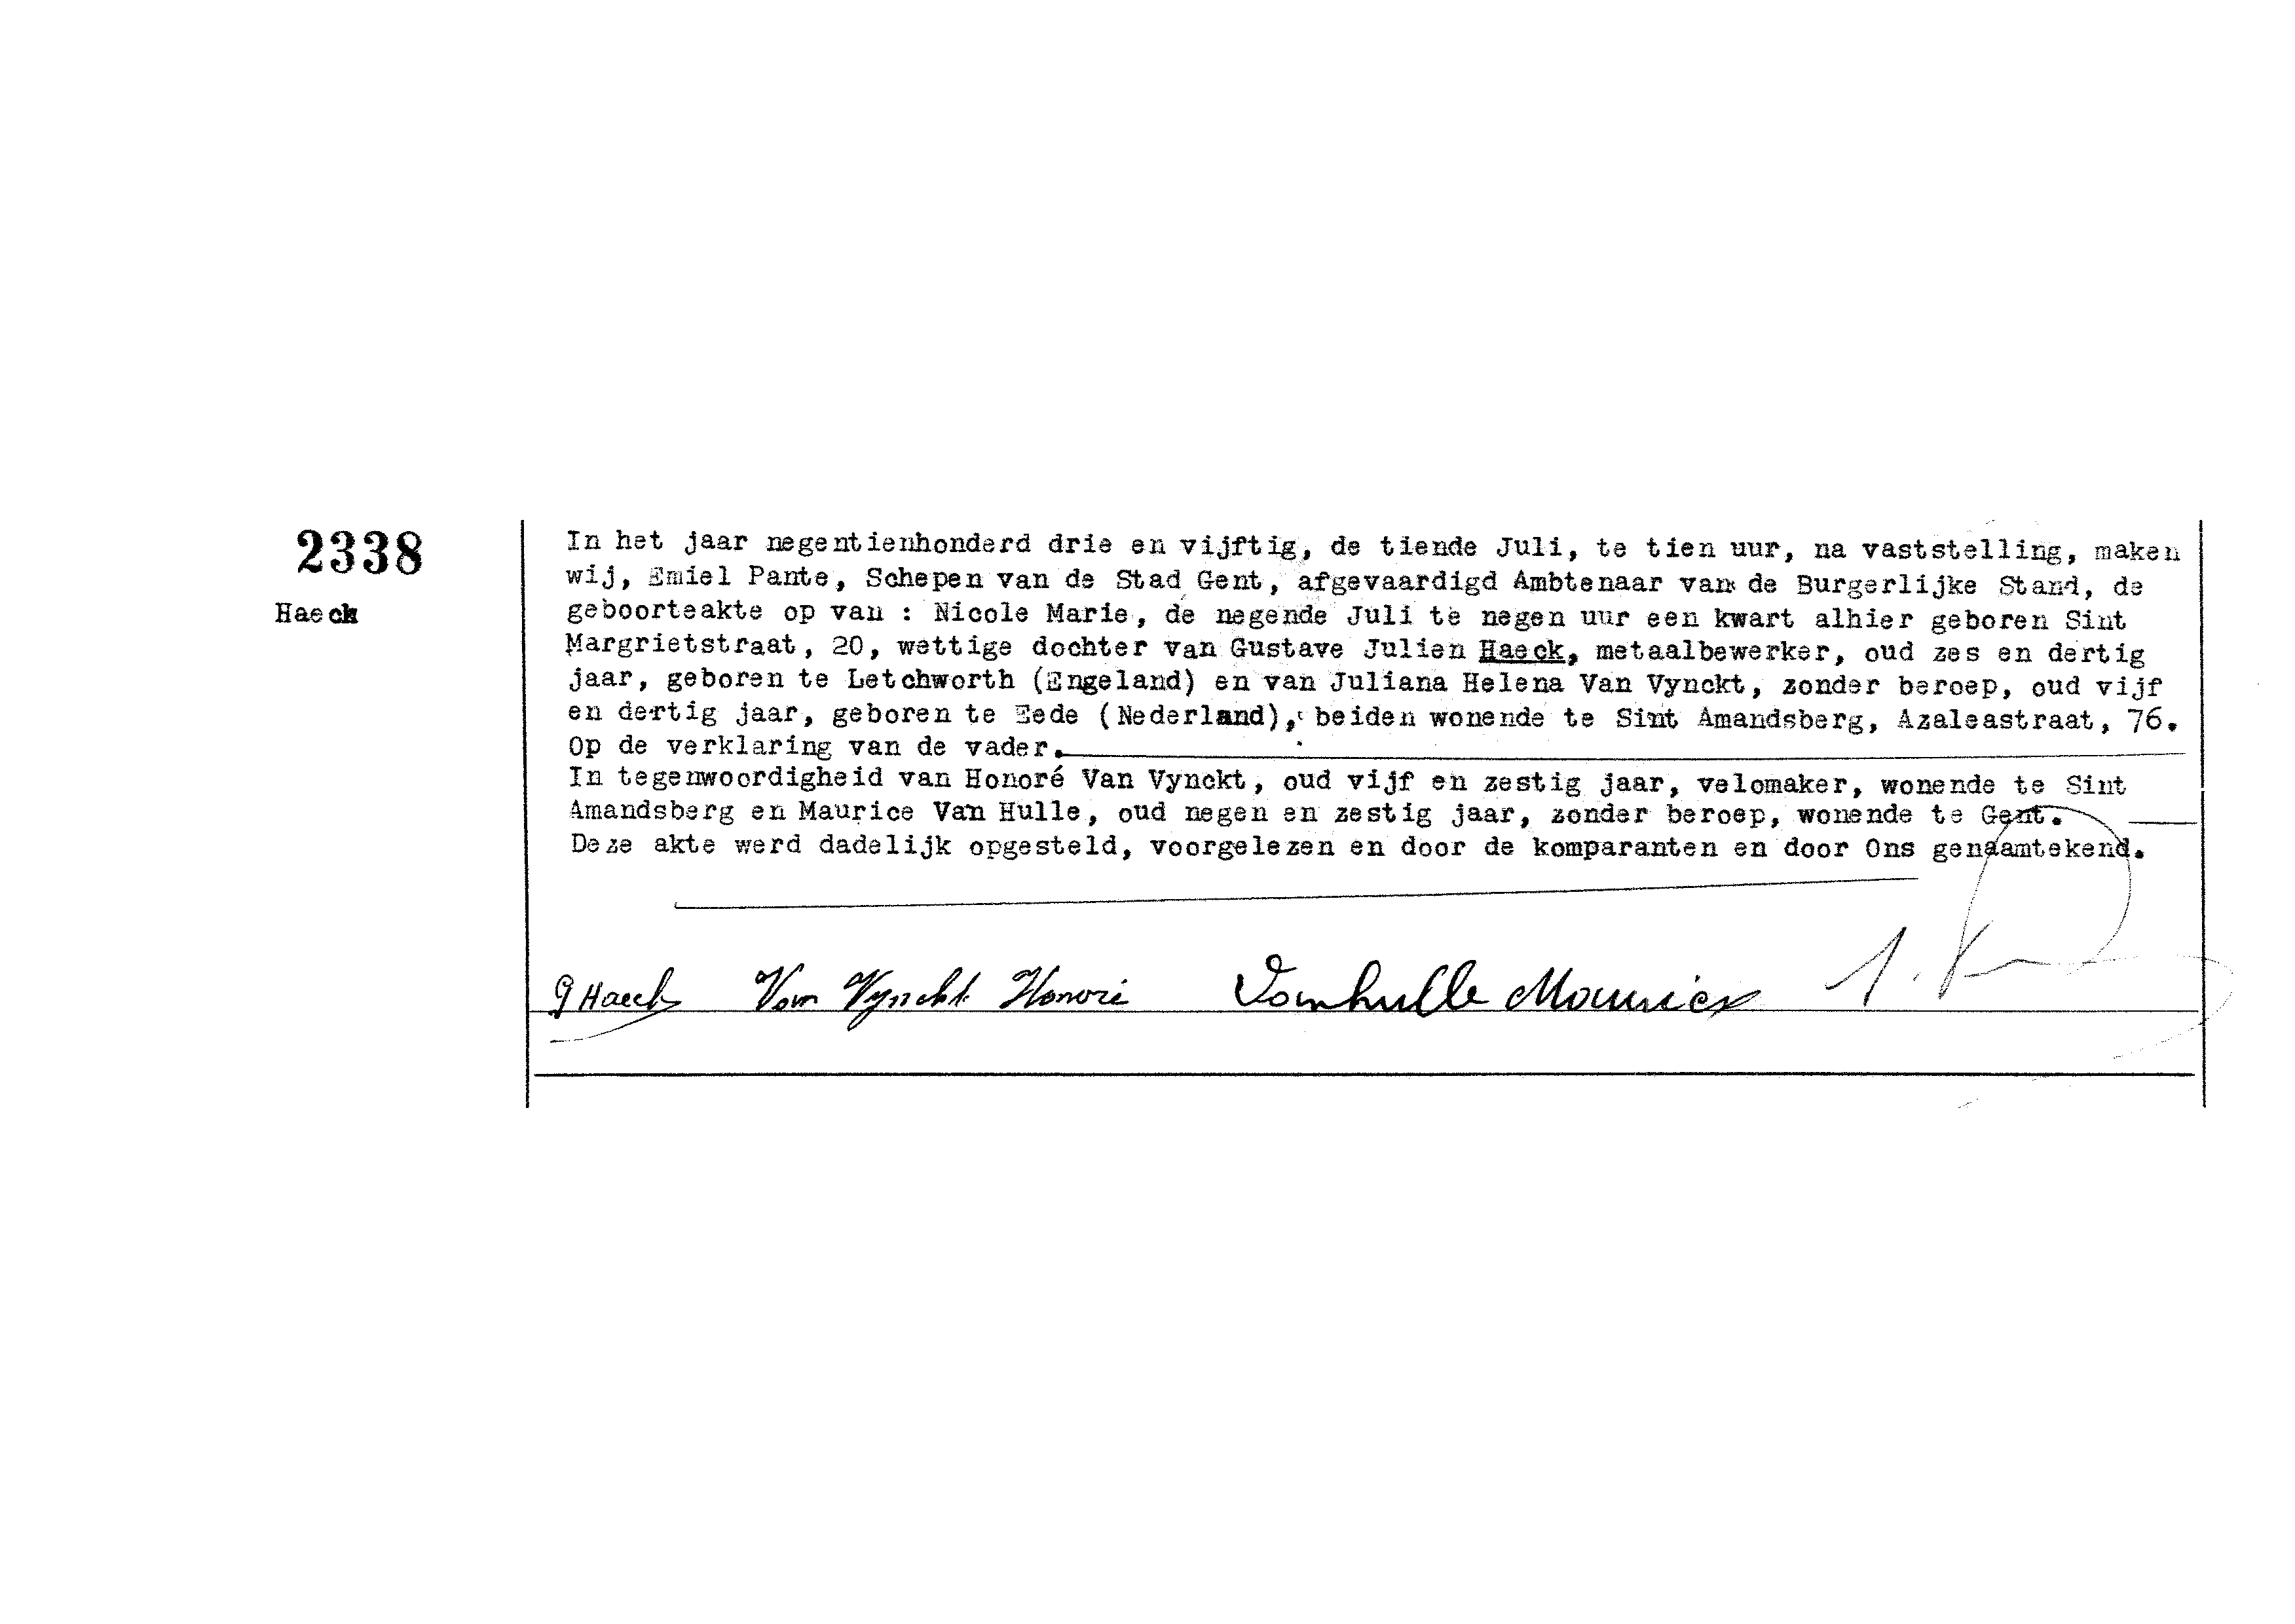 2338
Haeck
In het jaar negentienhonderd drie en vijftig, de tiende Juli, te tien uur, na vaststelling, maken
wij, Emiel Pante, Schepen van de Stad Gent, afgevaardigd Ambtenaar van de Burgerlijke Stand, de
geboorteakte op van : Nicole Marie, de negende Juli te negen uur een kwart alhier geboren Sint
Margrietstraat, 20, wettige dochter van Gustave Julien Haeck, metaalbewerker, oud zes en dertig
jaar, geboren te Letchworth (Engeland) en van Juliana Helena Van Vynckt, zonder beroep, oud vijf
en dertig jaar, geboren te Eede (Nederland), beiden wonende te Sint Amandsberg, Azaleastraat, 76.
Op de verklaring van de vader.
In tegenwoordigheid van Honoré Van Vynckt, oud vijf en zestig jaar, velomaker, wonende te Sint
Amandsberg en Maurice Van Hulle, oud negen en zestig jaar, zonder beroep, wonende te Gent.
Deze akte werd dadelijk opgesteld, voorgelezen en door de komparanten en door Ons genaamtekend.
G Haeck Van Vynckt Honoré Vanhulle Maurice